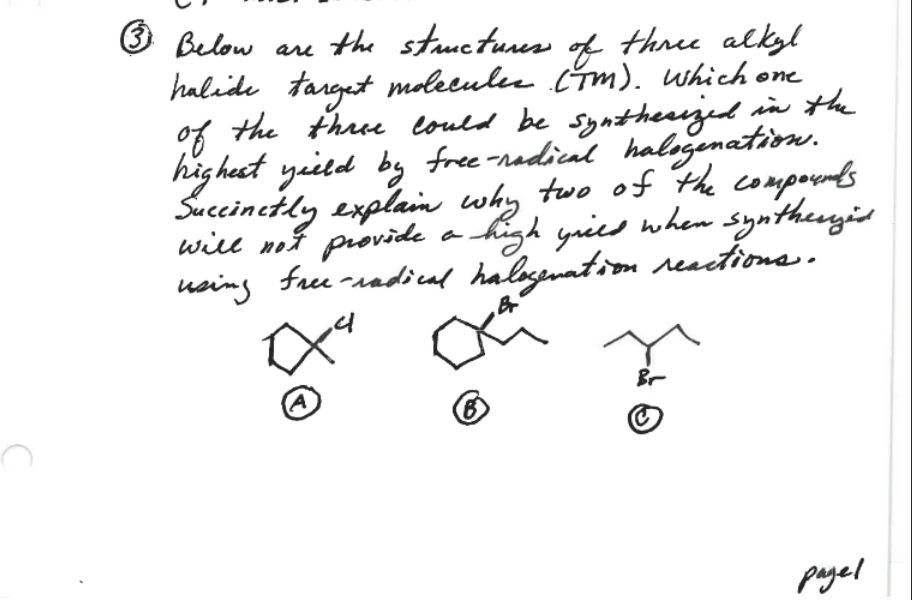 ③ Below are the structures of three alkyl
halide target molecules (TM). Which one
of the three could be synthesized in the
highest yield by free-radical halogenation.
Succinctly explain why two of the compounds
will not provide a high yield when synthesized
using free-radical halogenation reactions.
Cl
Br
Br
Ⓐ
Ⓑ
Ⓒ
page 1